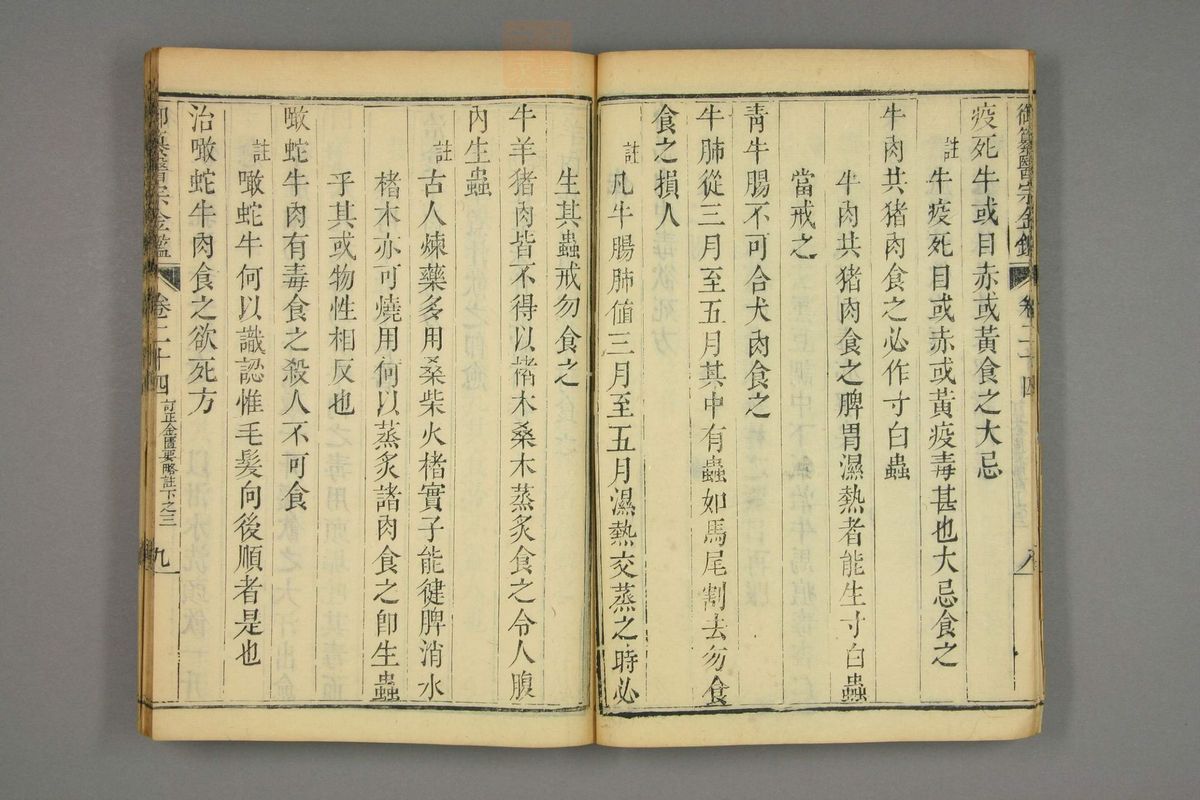 御纂醫宗金鑑 卷二十四 八
疫死牛或目赤或黃食之大忌
註牛疫死目或赤或黃疫毒甚也大忌食之
牛肉共猪肉食之必作寸白蟲
牛肉共猪肉食之脾胃濕熱者能生寸白蟲
當戒之
青牛腸不可合犬肉食之
牛肺從三月至五月其中有蟲如馬尾割去勿食
食之損人
註凡牛腸肺值三月至五月濕熱交蒸之時必
生其蟲戒勿食之
牛羊猪肉皆不得以楮木桑木蒸炙食之令人腹
內生蟲
註古人煉藥多用桑柴火楮實子能健脾消水
楮木亦可燒用何以蒸炙諸肉食之卽生蟲
乎其或物性相反也
噉蛇牛肉有毒食之殺人不可食
註噉蛇牛何以識認惟毛髮向後順者是也
治噉蛇牛肉食之欲死方
御纂醫宗金鑑 卷二十四 訂正金匱要略註下之三 九